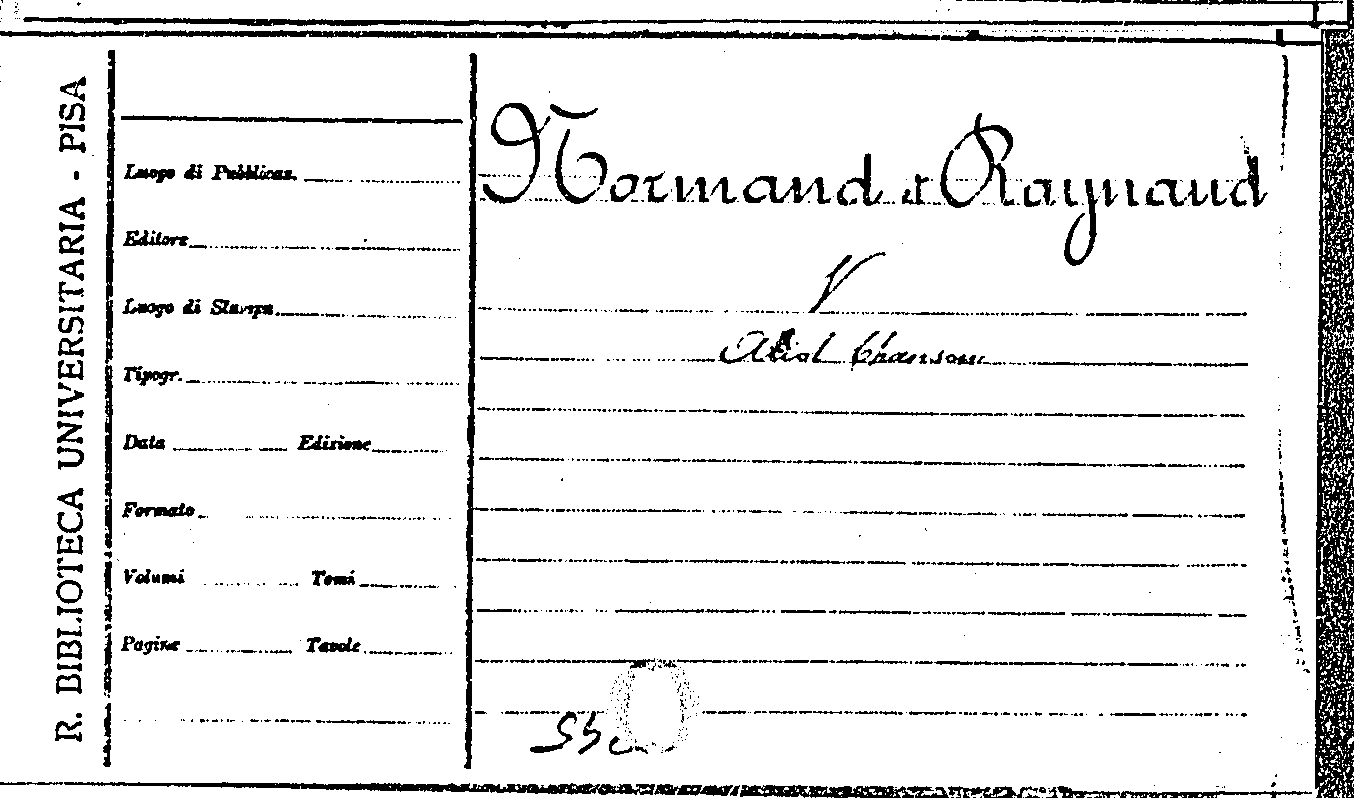 R. BIBLIOTECA UNIVERSITARIA - PISA
Luogo di Pubblicaz.
Editore
Luogo di Stampa
Tipogr.
Data Edizione
Formato
Volumi Tomi
Pagine Tavole
Normand et Raynaud
V
Aiol Chanson